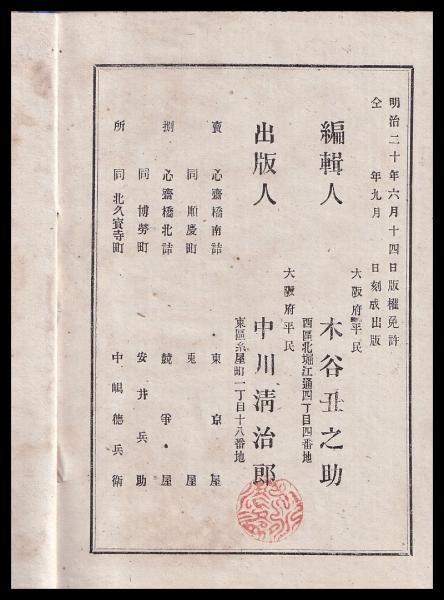 明治二十年六月十四日版權免許
仝 年九月 日刻成出版
大阪府平民
編輯人 木谷丑之助
西區北堀江通四丁目四番地
大阪府平民
出版人 中川清治郎
東區糸屋町一丁目十八番地
賣 心齋橋南詰 東京屋
同 順慶町 兎屋
捌 心齋橋北詰 競爭屋
同 博勞町 安井兵助
所 同 北久寳寺町 中嶋德兵衛